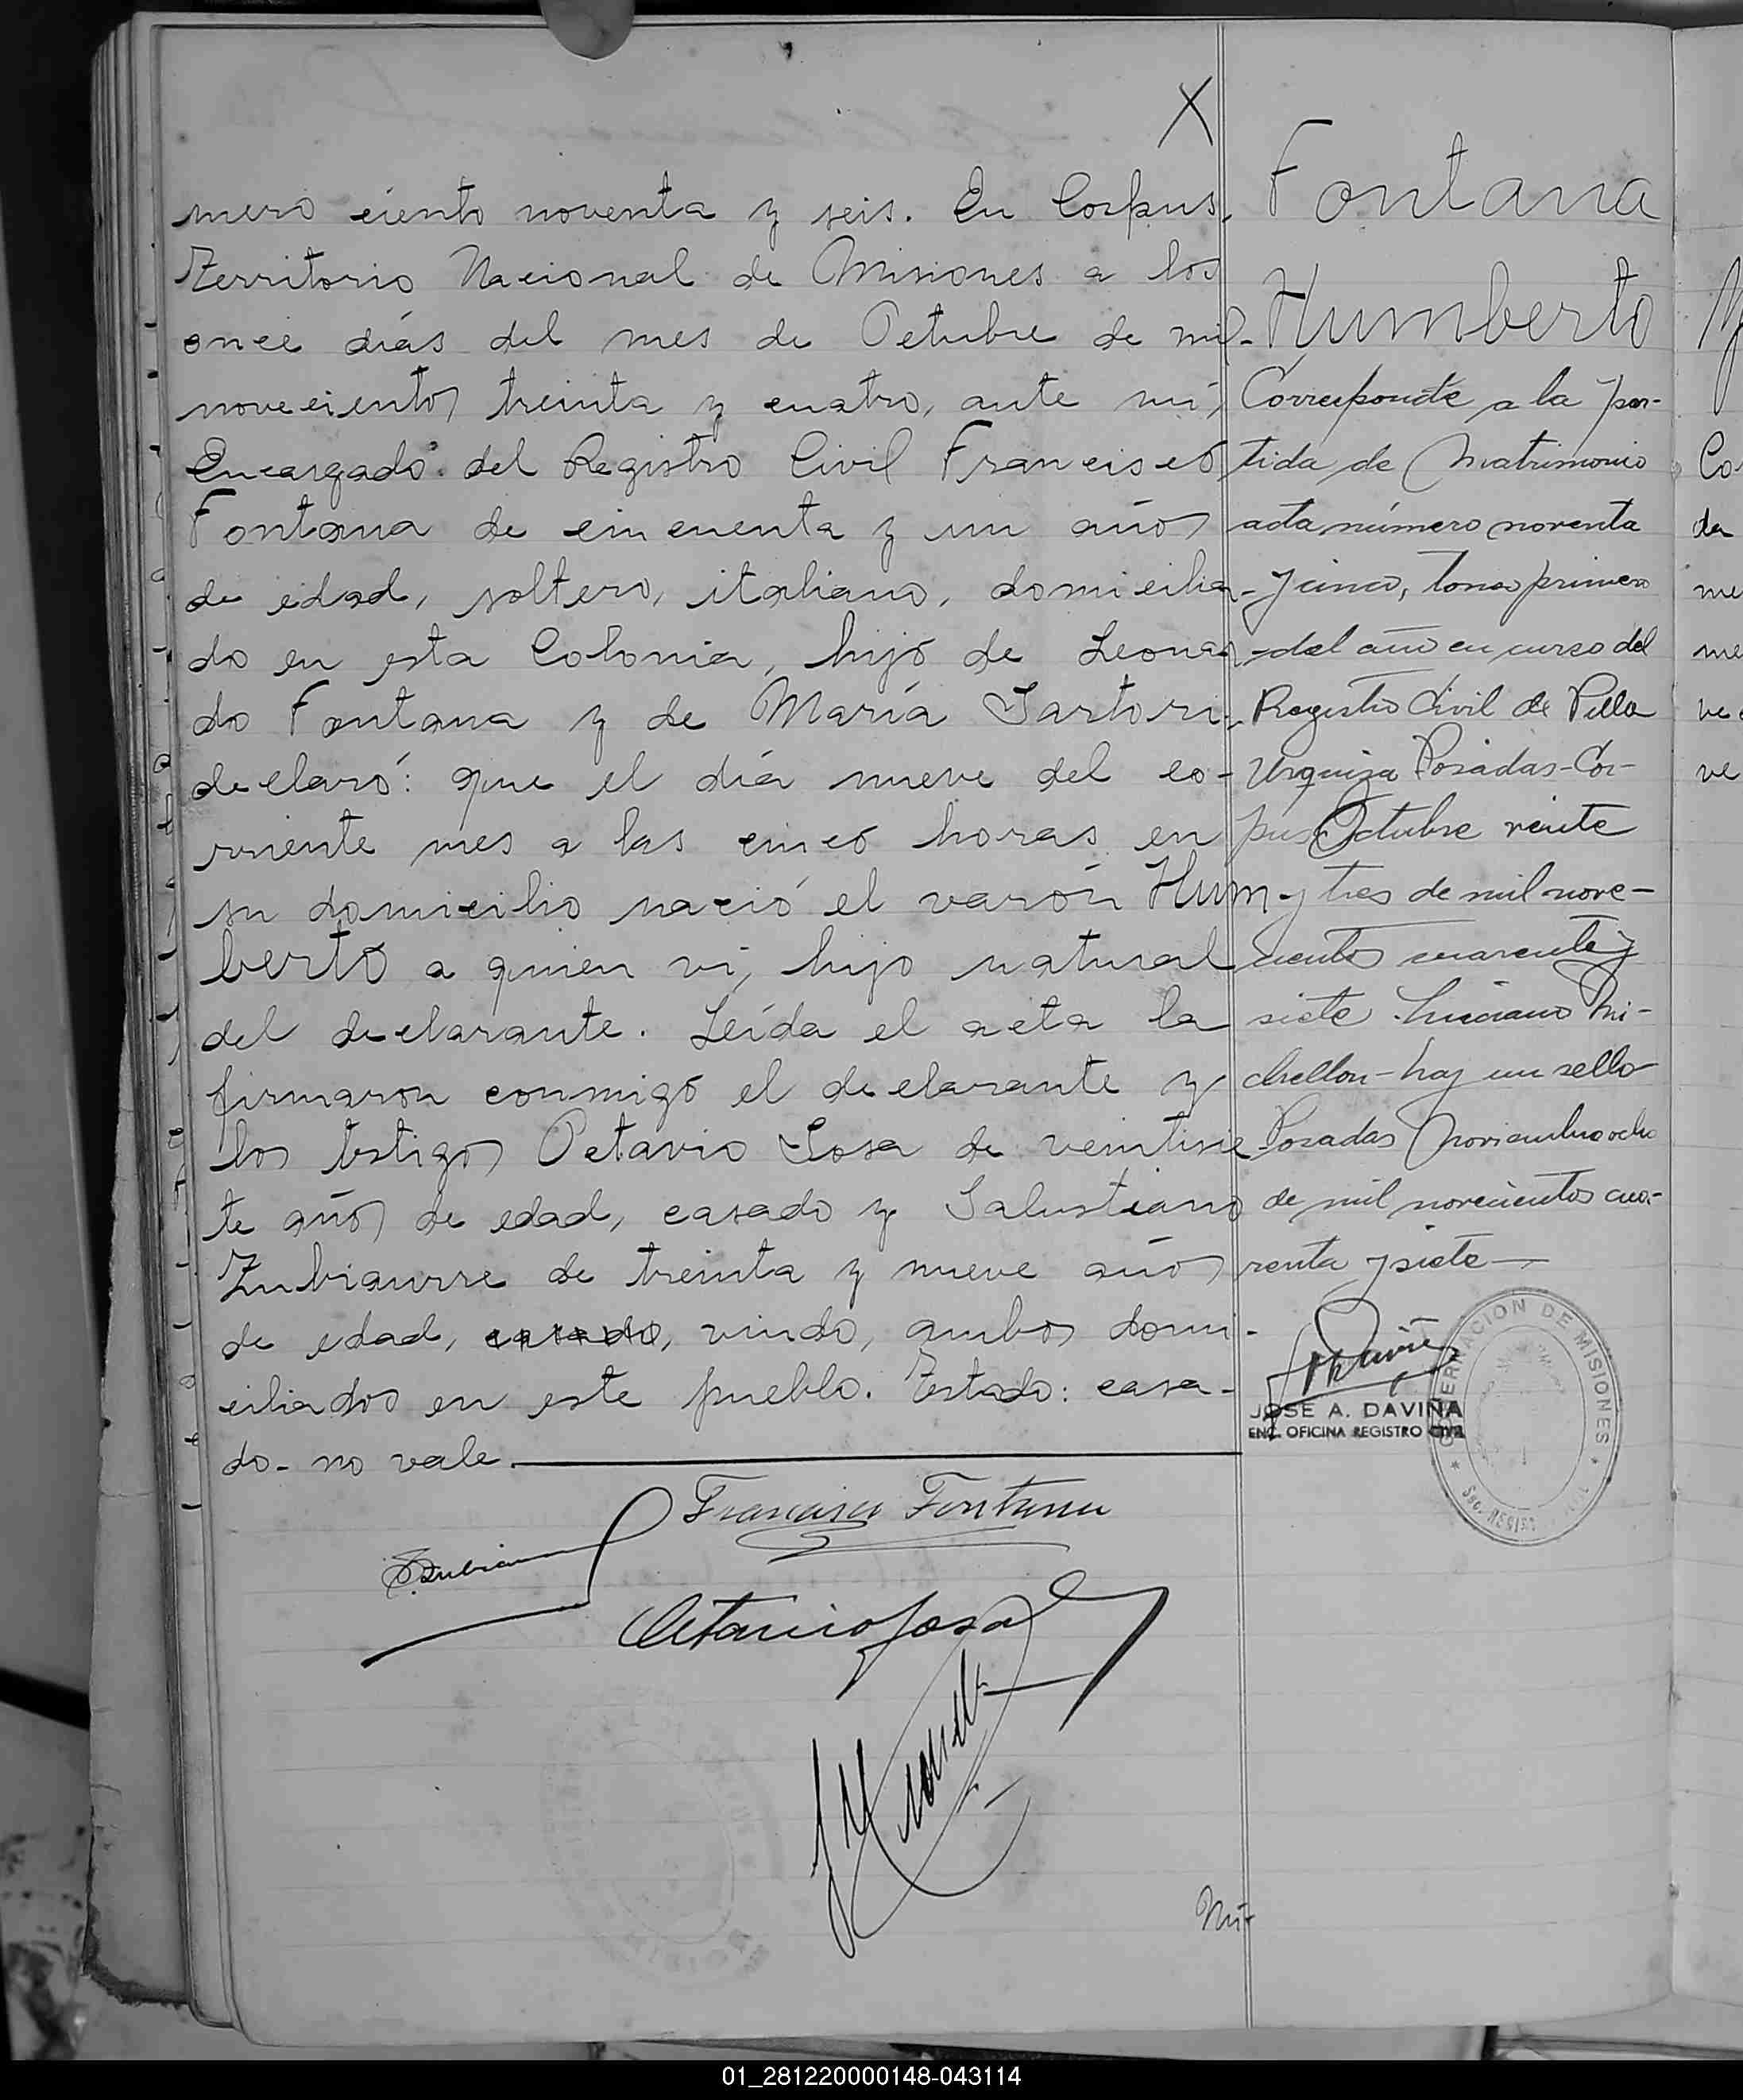 X
mero ciento noventa y seis. En Corpus,
Territorio Nacional de Misiones a los
once días del mes de Octubre de mil
novecientos treinta y cuatro, ante mí,
Encargado del Registro Civil Francisco
Fontana de cincuenta y un años
de edad, soltero, italiano, domicilia-
do en esta Colonia, hijo de Leonar-
do Fontana y de María Sartori,
declaró: que el día nueve del co-
rriente mes a las cinco horas en
su domicilio nació el varón Hum-
berto a quien vi, hijo natural
del declarante. Leída el acta la
firmaron conmigo el declarante y
los testigos Octavio Sosa de veintisie-
te años de edad, casado y Salustiano
Zubiaurre de treinta y nueve años
de edad, casado, viudo, ambos domi-
ciliados en este pueblo. Testado: casa-
do- no vale.
Francisco Fontana
Octavio Sosa
Nú-
Fontana
Humberto
Corresponde a la par-
tida de Matrimonio
acta número noventa
y cinco, tomo primero
del año en curso del
Registro Civil de Villa
Urquiza Posadas-Cor-
pus Octubre veinte
y tres de mil nove-
cientos cuarenta y
siete. Luciano Mi-
chellon-hay un sello
Posadas Noviembre ocho
de mil novecientos cua-
renta y siete
JOSE A. DAVIÑA
ENC. OFICINA REGISTRO CIVIL
GOBERNACION DE MISIONES
01_281220000148-043114